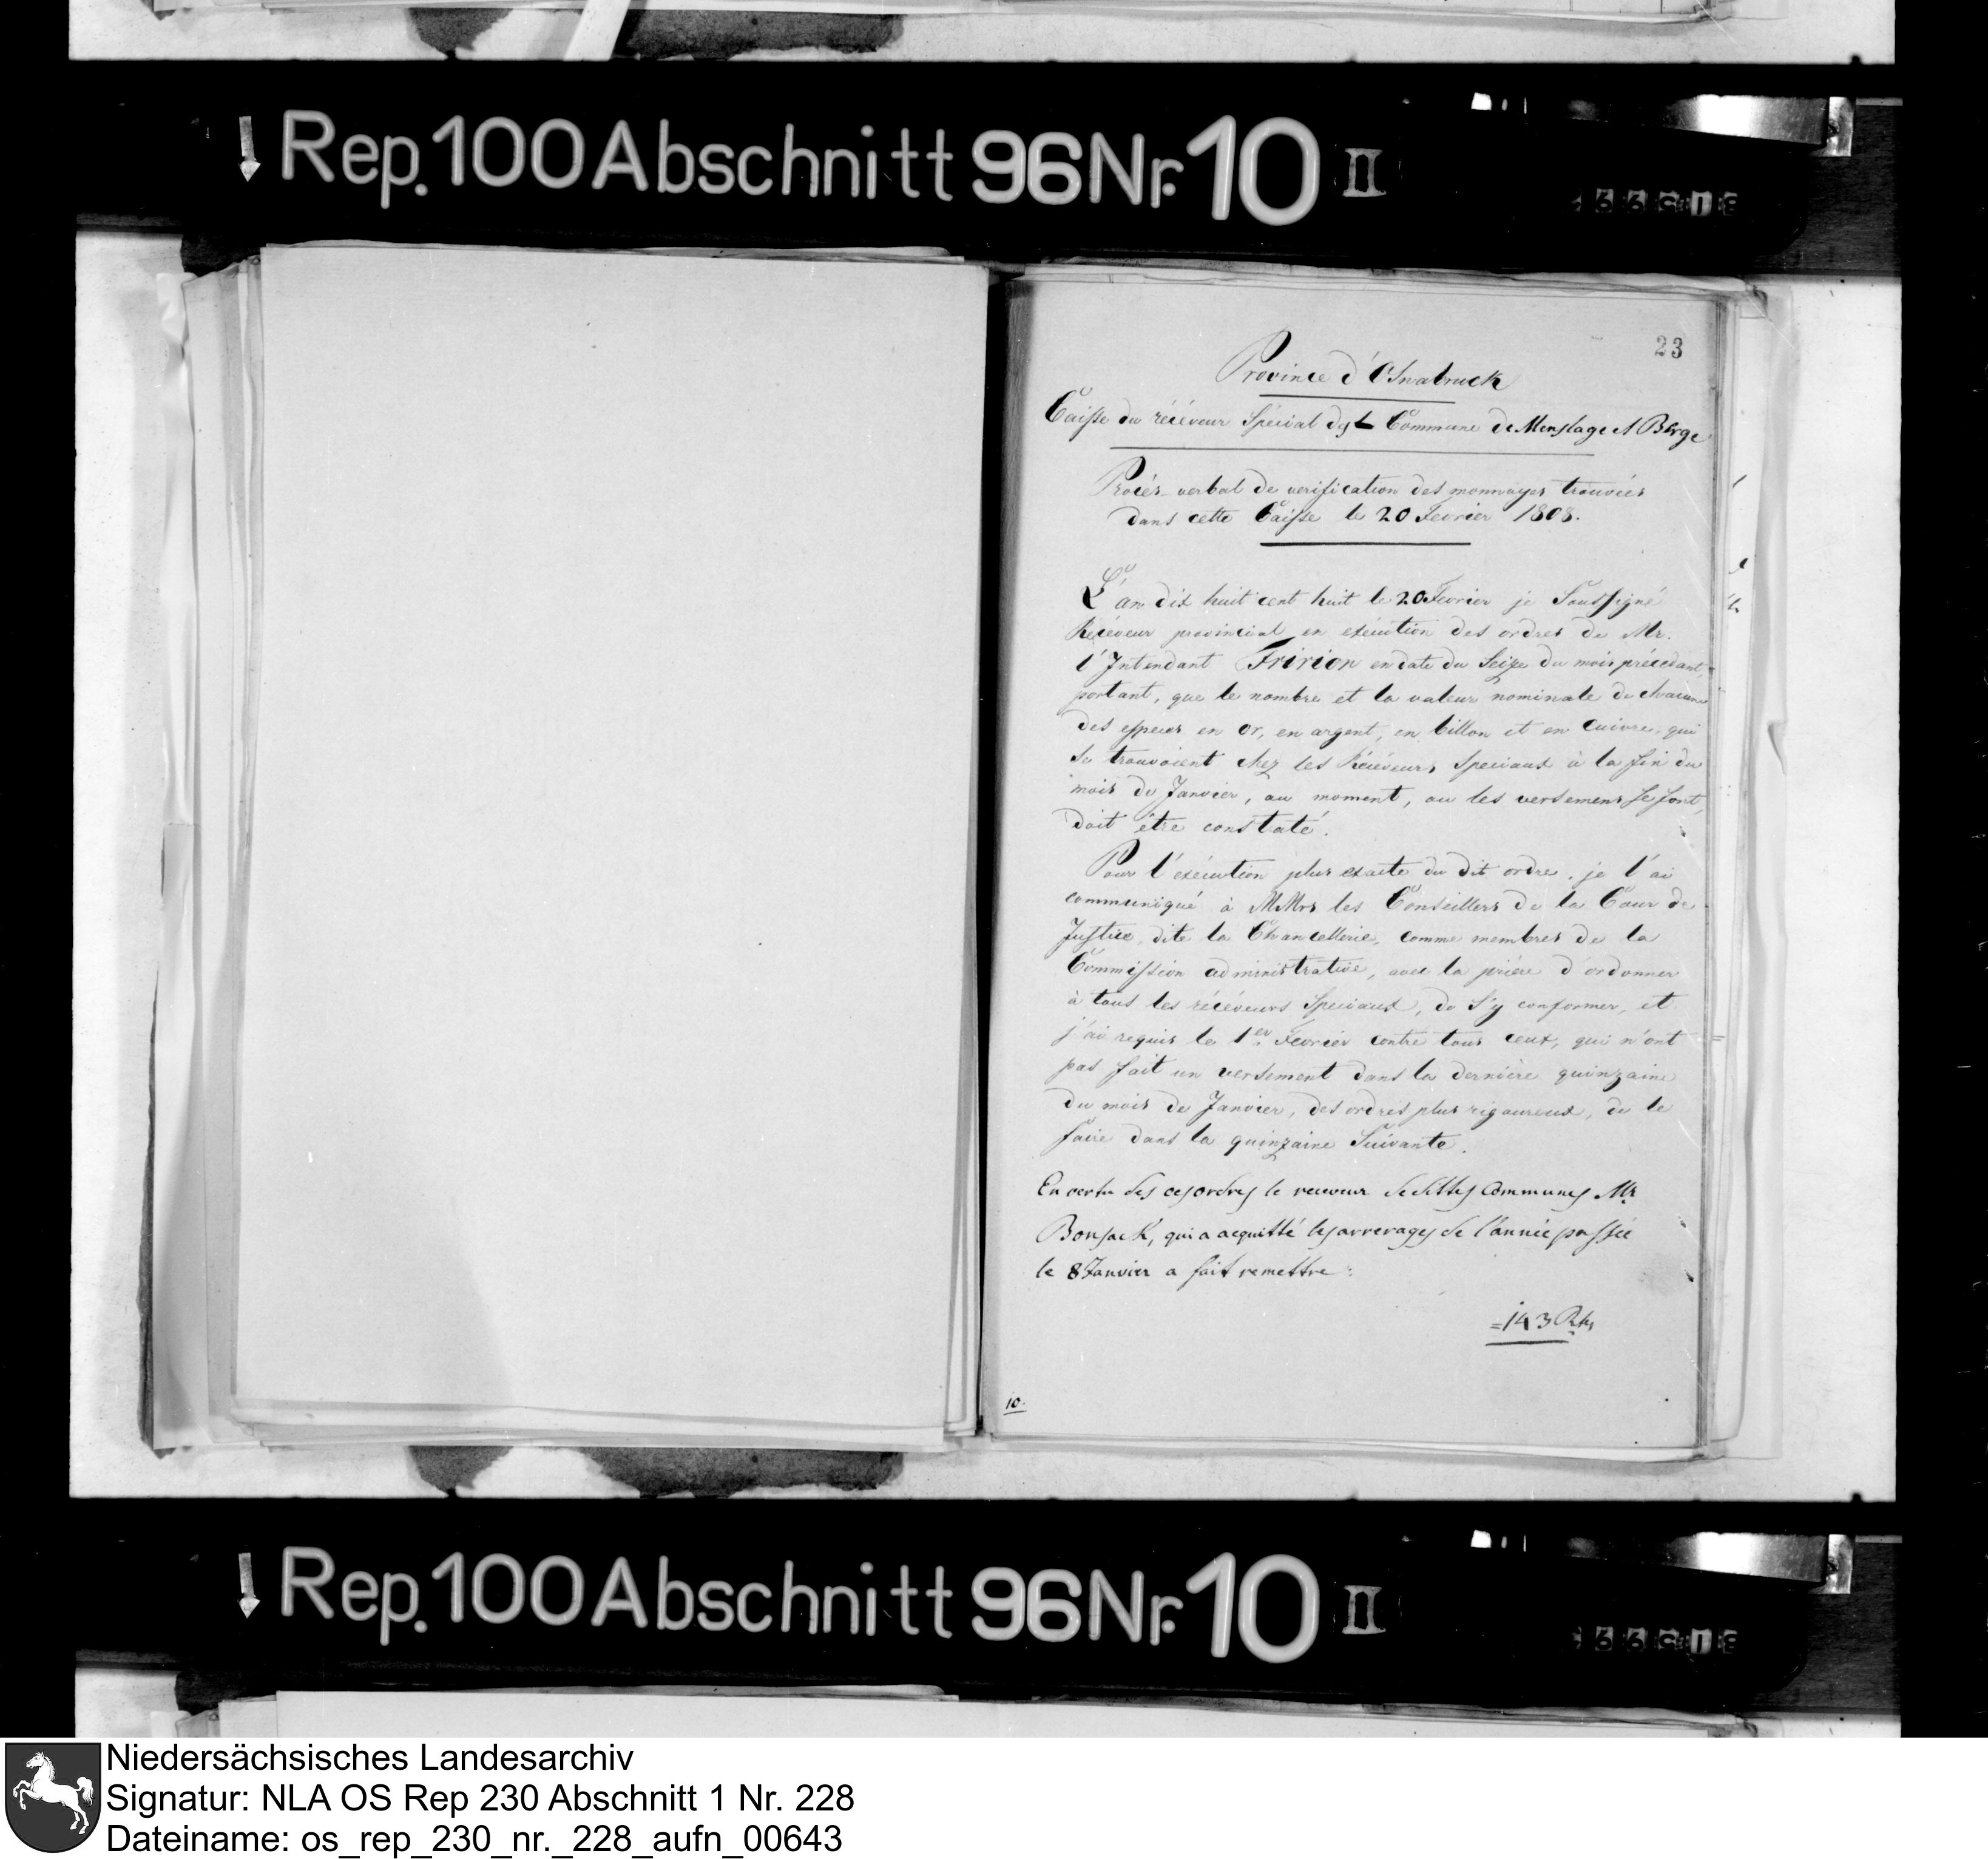 Rep. 100 Abschnitt 96 Nr. 10 II
23
Province d'Osnabruck
Caisse du récéveur Spécial des Commune de Menslage et Berge
Procés-verbal de verification des monnayes trouvées
dans cette Caisse le 20 Fevrier 1808.
L'an dix huit cent huit le 20 Fevrier je Soussigné
Recéveur provincial en exécution des ordres de Mr.
l'Intendant Fririon en date du Seize du mois précedant,
portant, que le nombre et la valeur nominale de chacune
des especes en or, en argent, en billon et en cuivre, qui
se trouvoient chez les Récéveurs Speciaux à la fin du
mois de Janvier, au moment, ou les versemens se font,
doit être constaté.
Pour l'exécution plus exacte du dit ordre, je l'ai
communiqué à MMrs les Conseillers de la Cour de
Justice, dite la Chancellerie, comme membres de la
Commission administrative, avec la priére d'ordonner
à tous les récéveurs Speciaux, de s'y conformer, et
j'ai requis le 1er Fevrier contre tous ceux, qui n'ont
pas fait un versement dans la dernière quinzaine
du mois de Janvier, des ordres plus rigoureux, de le
faire dans la quinzaine Suivante.
En vertu des ces ordres le receveur de dittes Communes Mr.
Bonsack, qui a acquitté les arrerages de l'année passée
le 8 Janvier a fait remettre:
=143 Rth
10.
Rep. 100 Abschnitt 96 Nr. 10 II
Niedersächsisches Landesarchiv
Signatur: NLA OS Rep 230 Abschnitt 1 Nr. 228
Dateiname: os_rep_230_nr._228_aufn_00643